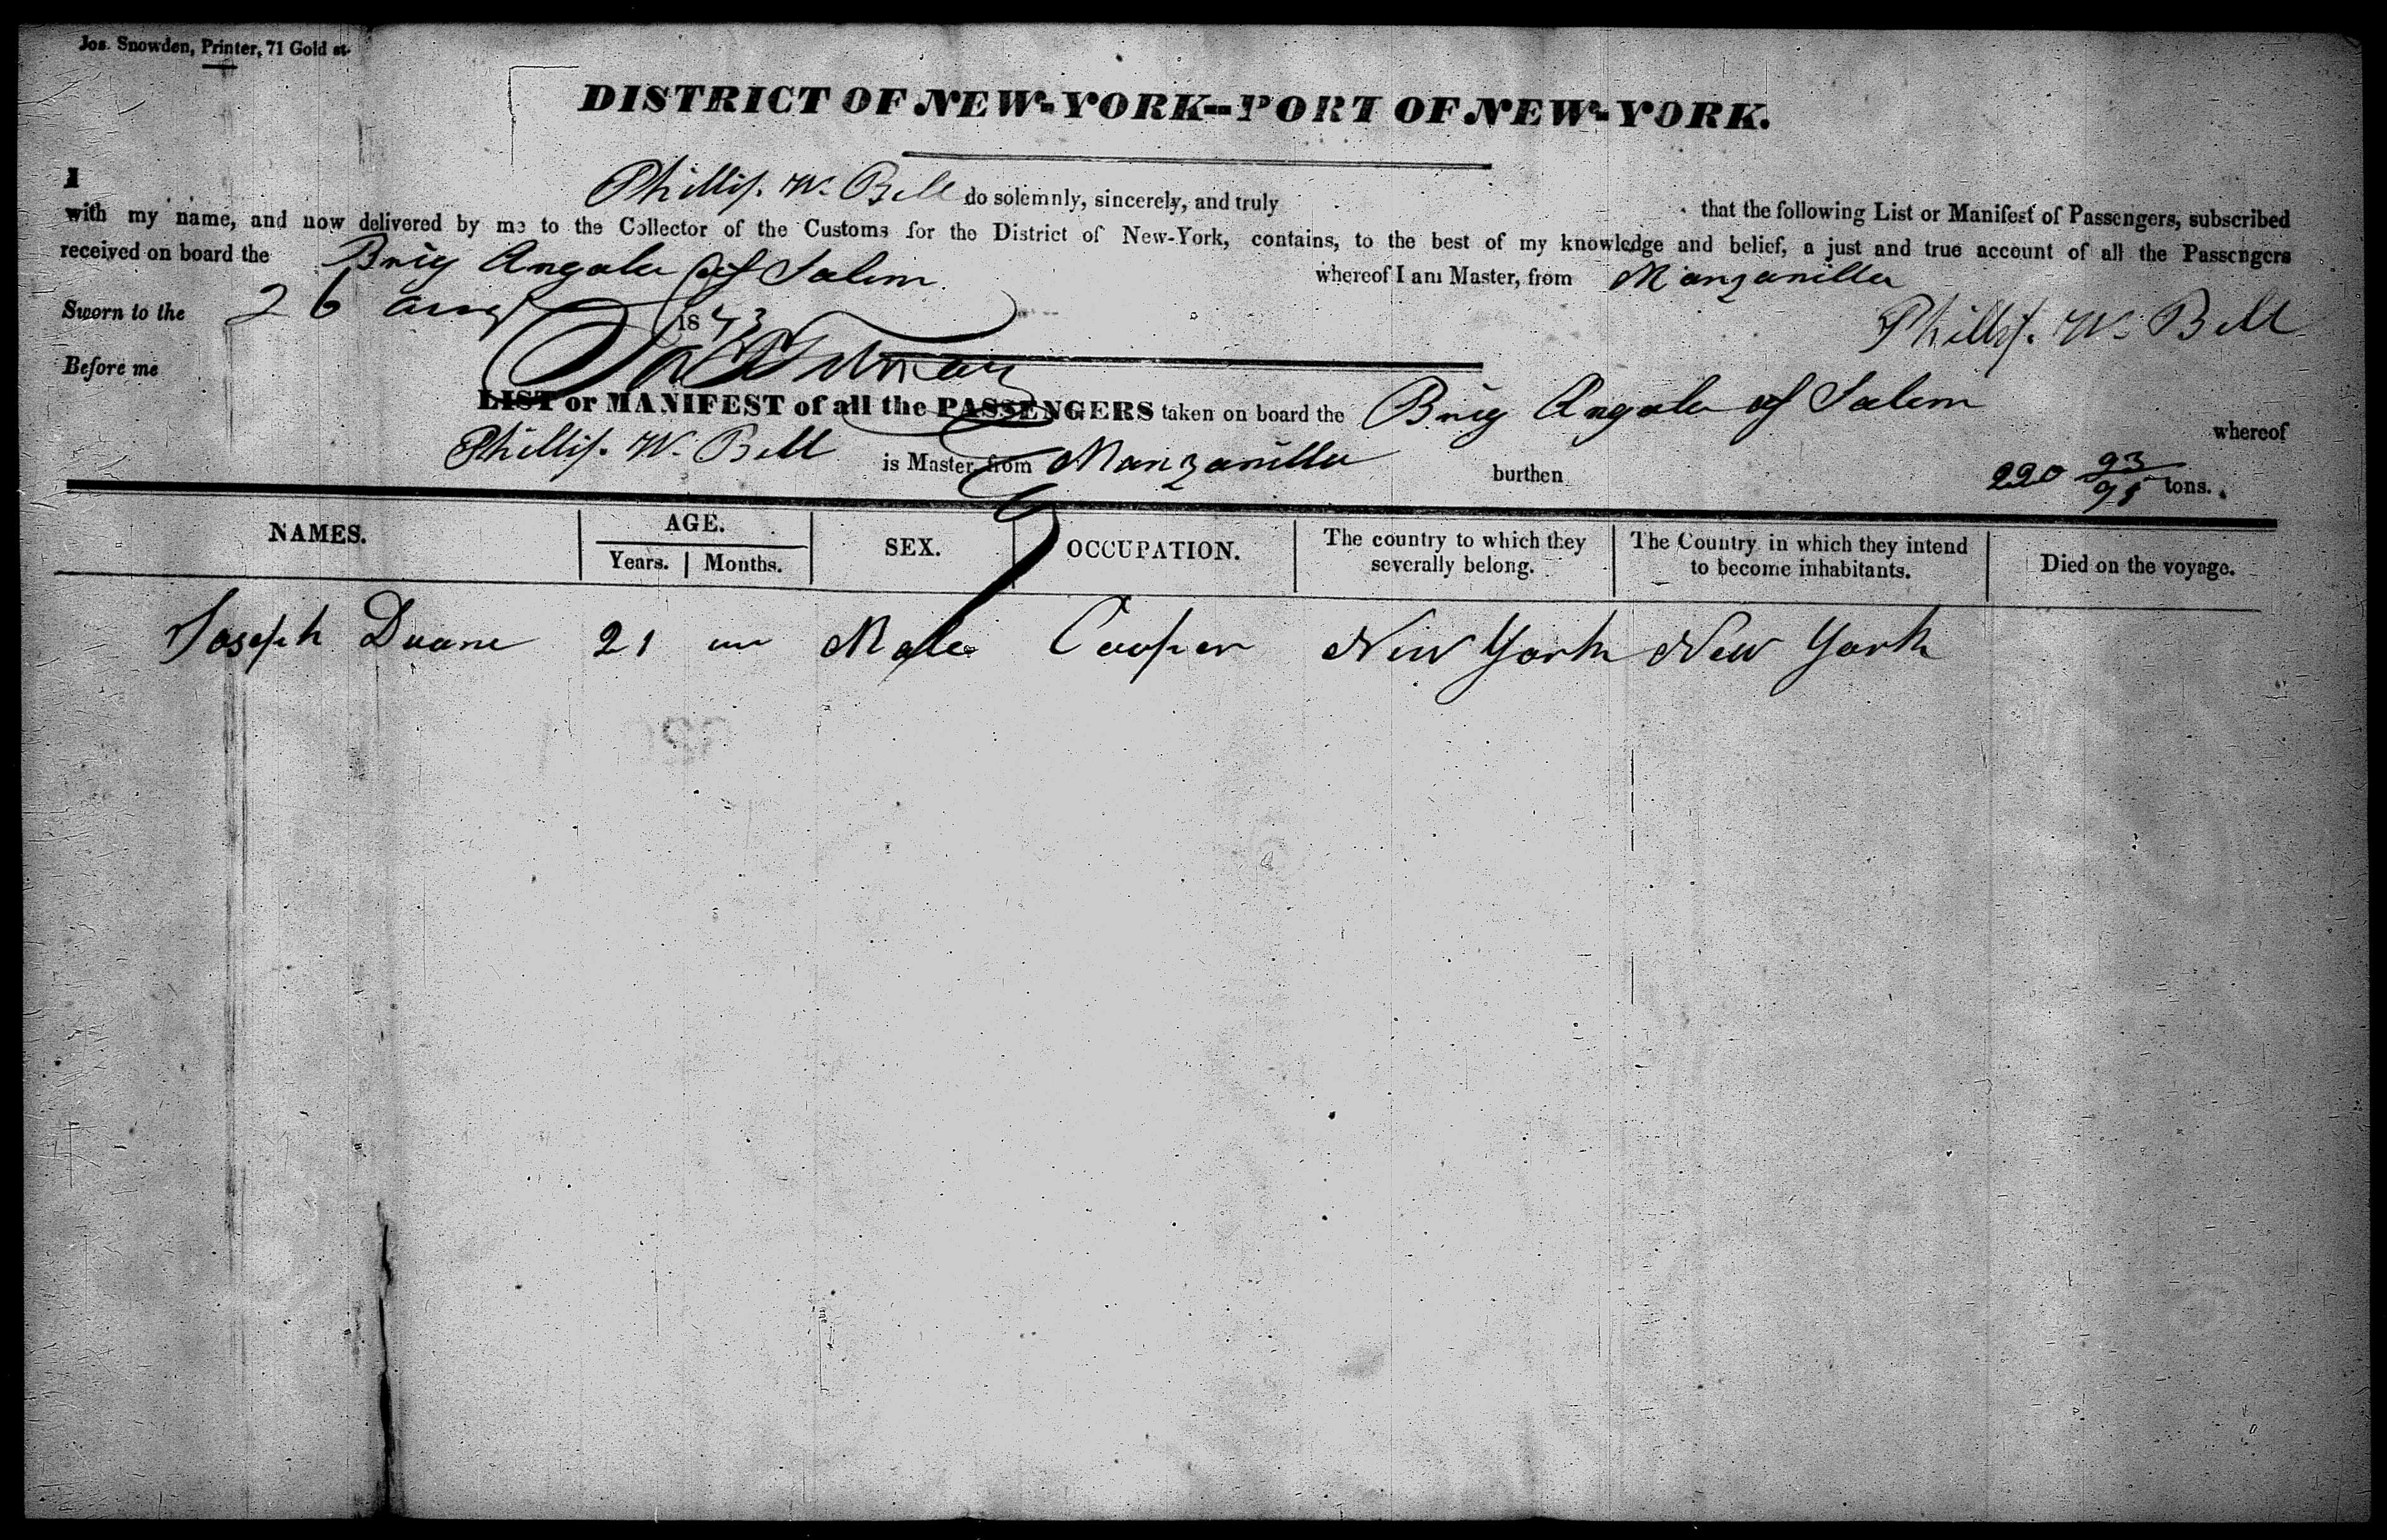 Jos. Snowden, Printer, 71 Gold st.
DISTRICT OF NEW-YORK--PORT OF NEW-YORK.
I Phillip. W. Bell do solemnly, sincerely, and truly that the following List or Manifest of Passengers, subscribed
with my name, and now delivered by me to the Collector of the Customs for the District of New-York, contains, to the best of my knowledge and belief, a just and true account of all the Passengers
received on board the Brig Angola of Salem whereof I am Master, from Manzanilla
Sworn to the 26 Aug 1843 Phillip. W. Bell
Before me
LIST or MANIFEST of all the PASSENGERS taken on board the Brig Angola of Salem whereof
Phillip. W. Bell is Master, from Manzanilla burthen 220 93/95 tons.
NAMES. AGE. SEX. OCCUPATION. The country to which they severally belong. The Country in which they intend to become inhabitants. Died on the voyage.
Years. Months.
Joseph Duane 21 Male Cooper New York New York